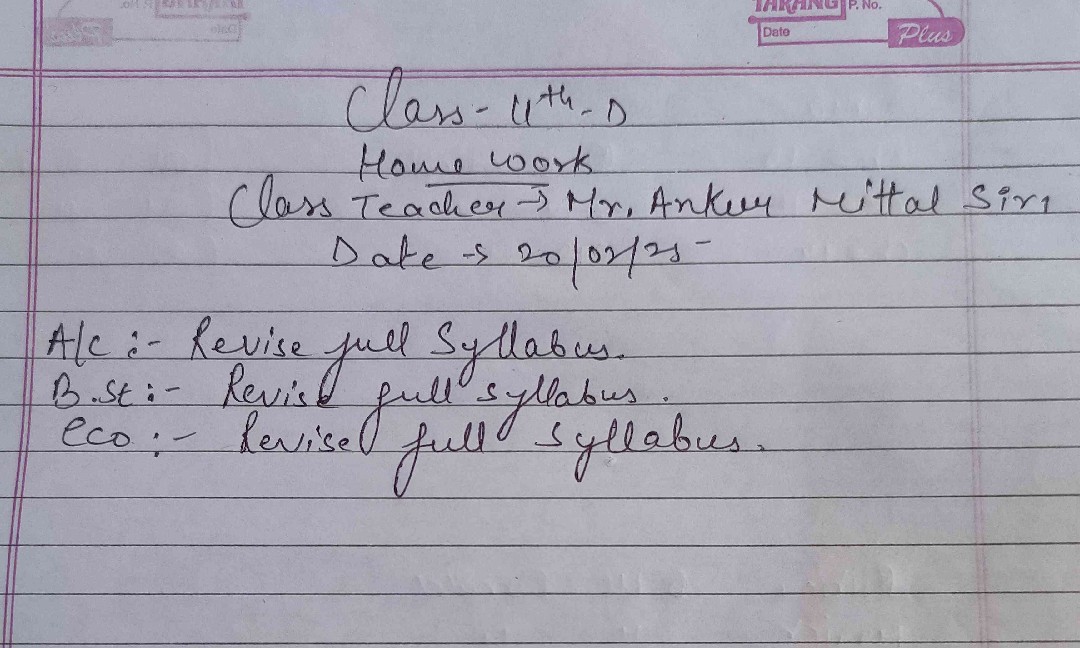 TARANG P. No.
Date Plus
Class - 11th - D
Home work
Class Teacher → Mr. Ankur Mittal Sir.
Date → 20/02/25
A/c :- Revise full Syllabus.
B.St :- Revise full syllabus.
eco :- Revise full syllabus.